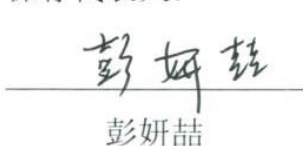 彭妍喆
彭妍喆